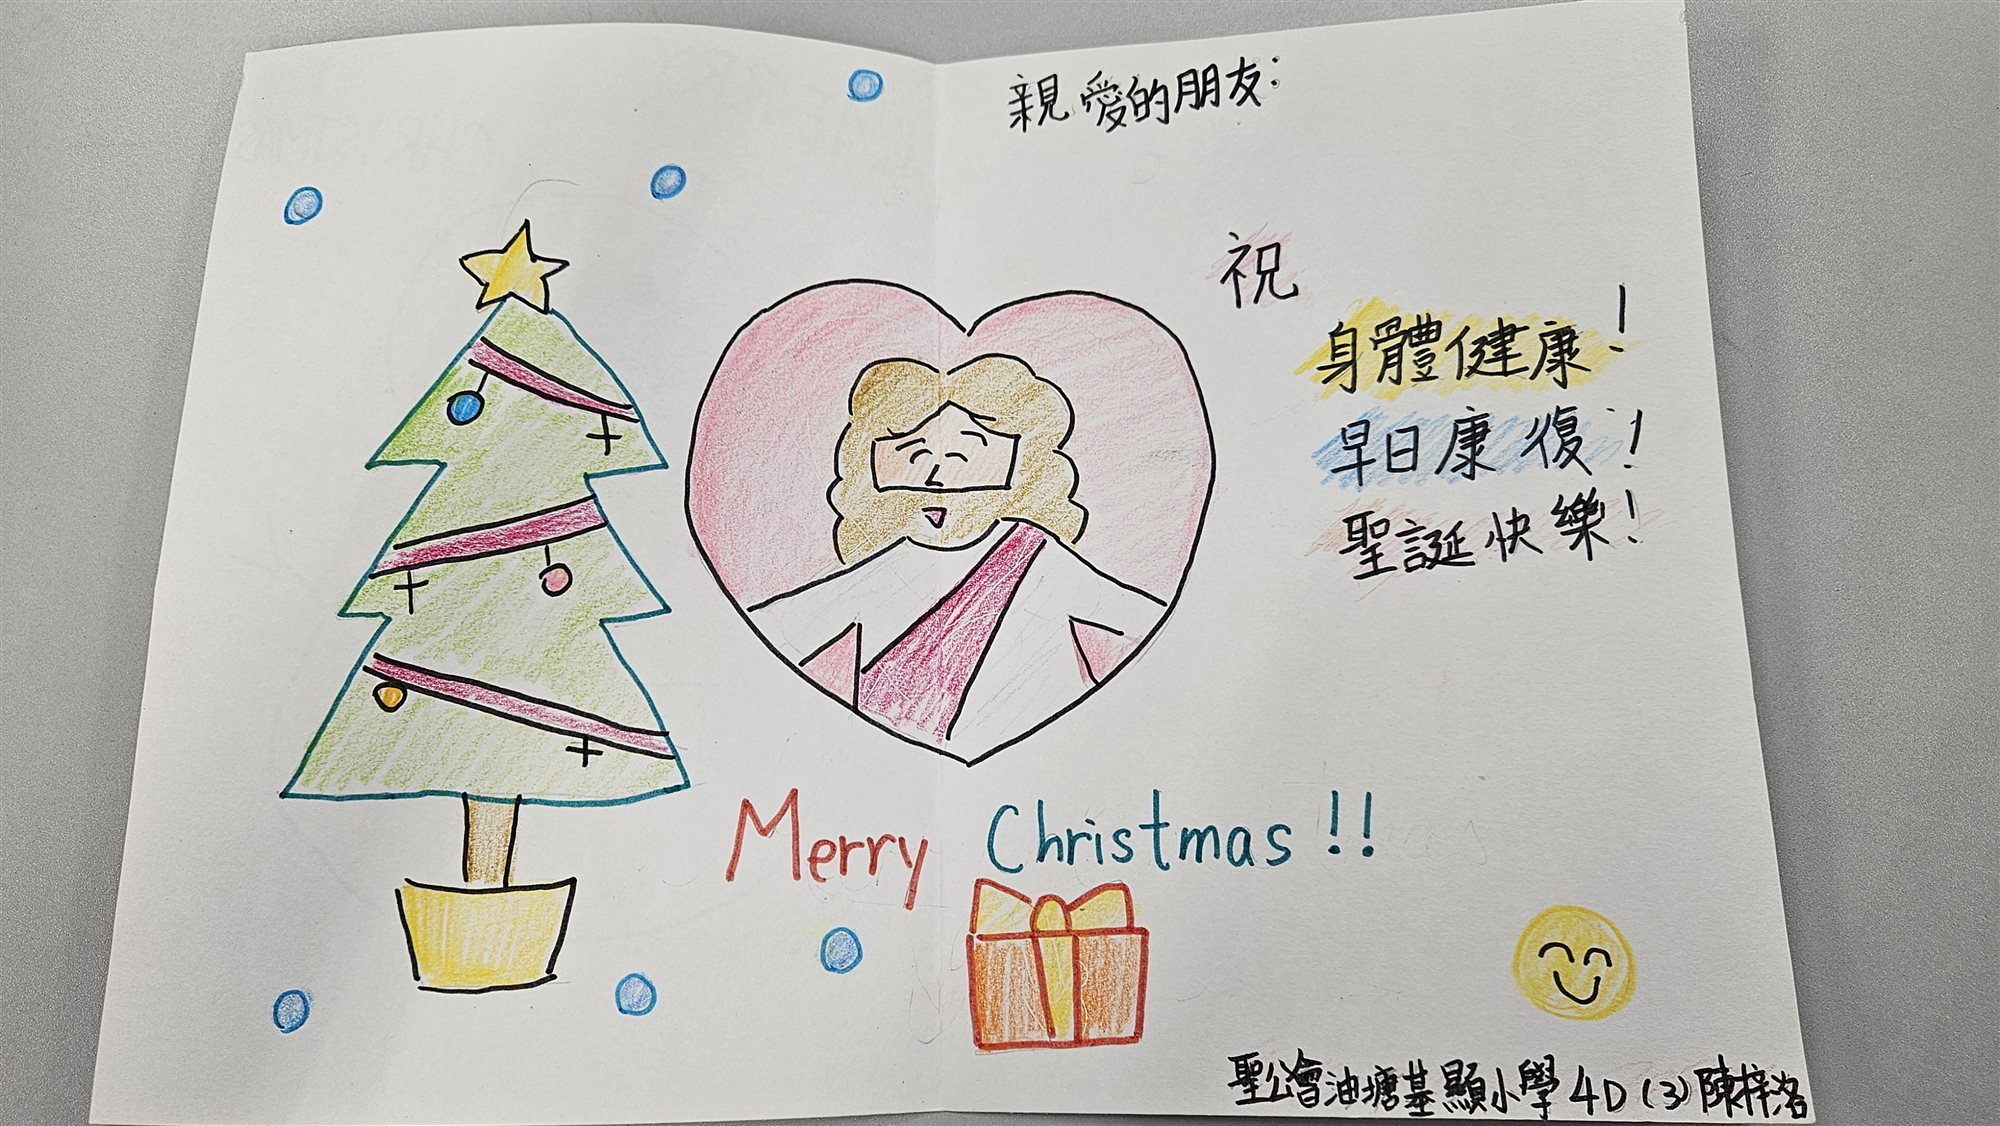 親愛的朋友:
祝
身體健康!
早日康復!
聖誕快樂!
Merry Christmas!!
聖公會油塘基顯小學 4D (3) 陳梓洛